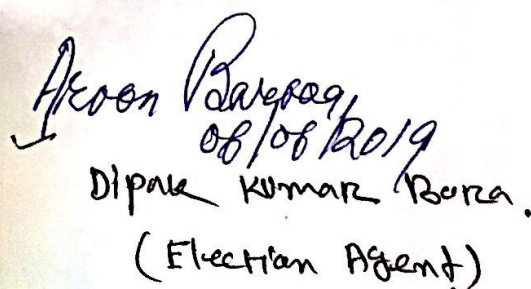 Aroon Barooa
06/06/2019
Dipak Kumar Bora.
(Election Agent)